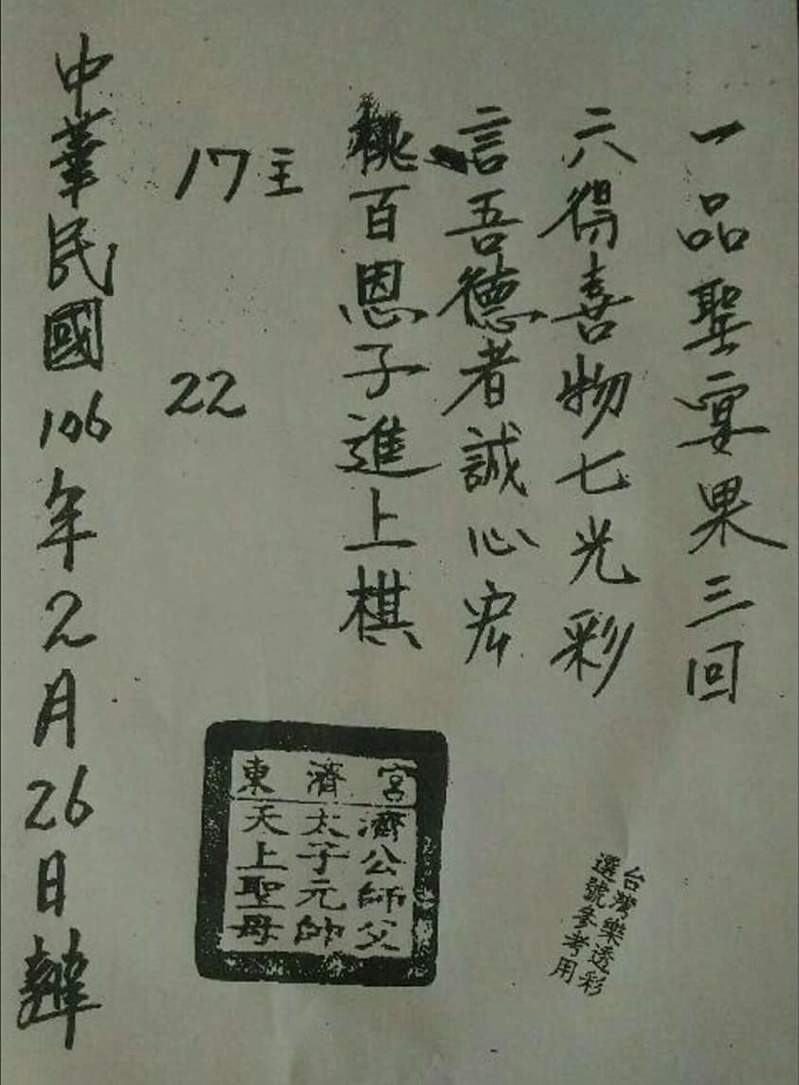 一品聖宴果三回
六得喜物七光彩
言吾德者誠心宏
桃百恩子進上棋
17主
22
中華民國106年2月26日
東濟宮
濟公師父
太子元帥
天上聖母
台灣樂透彩
選號參考用